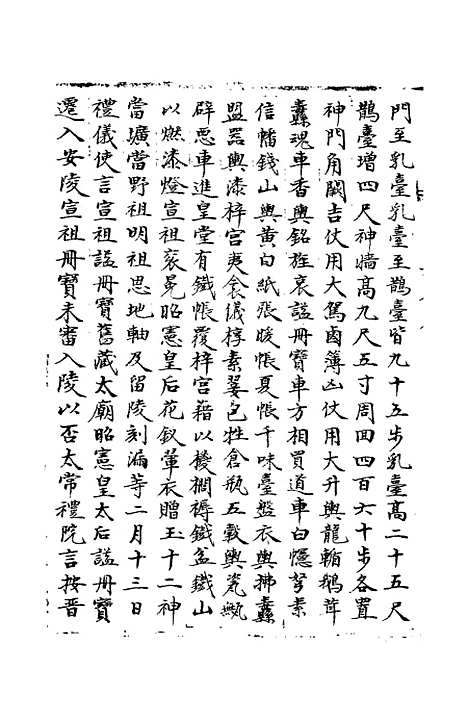 門至乳臺乳臺至鵲臺皆九十五步乳臺高二十五尺
鵲臺增四尺神墻高九尺五寸周回四百六十步各置
神門角闕吉仗用大駕鹵簿凶仗用大升輿龍輴鵝茸
纛魂車香輿銘旌哀謚冊寶車方相買道車白幰弩素
信幡錢山輿黄白紙張暖帳夏帳千味臺盤衣輿拂纛
盟器輿漆梓宮夷衾儀椁素翣包牲倉瓶五穀輿瓷甒
辟惡車進皇堂有鐵帳覆梓宮藉以椶櫚褥鐵盆鐵山
以燃漆燈宣祖衮冕昭憲皇后花釵翬衣贈玉十二神
當壙當野祖明祖思地軸及留陵刻漏等二月十三日
禮儀使言宣祖謚冊寶舊藏太廟昭憲皇太后謚冊寶
遷入安陵宣祖冊寶未審入陵以否太常禮院言按晋